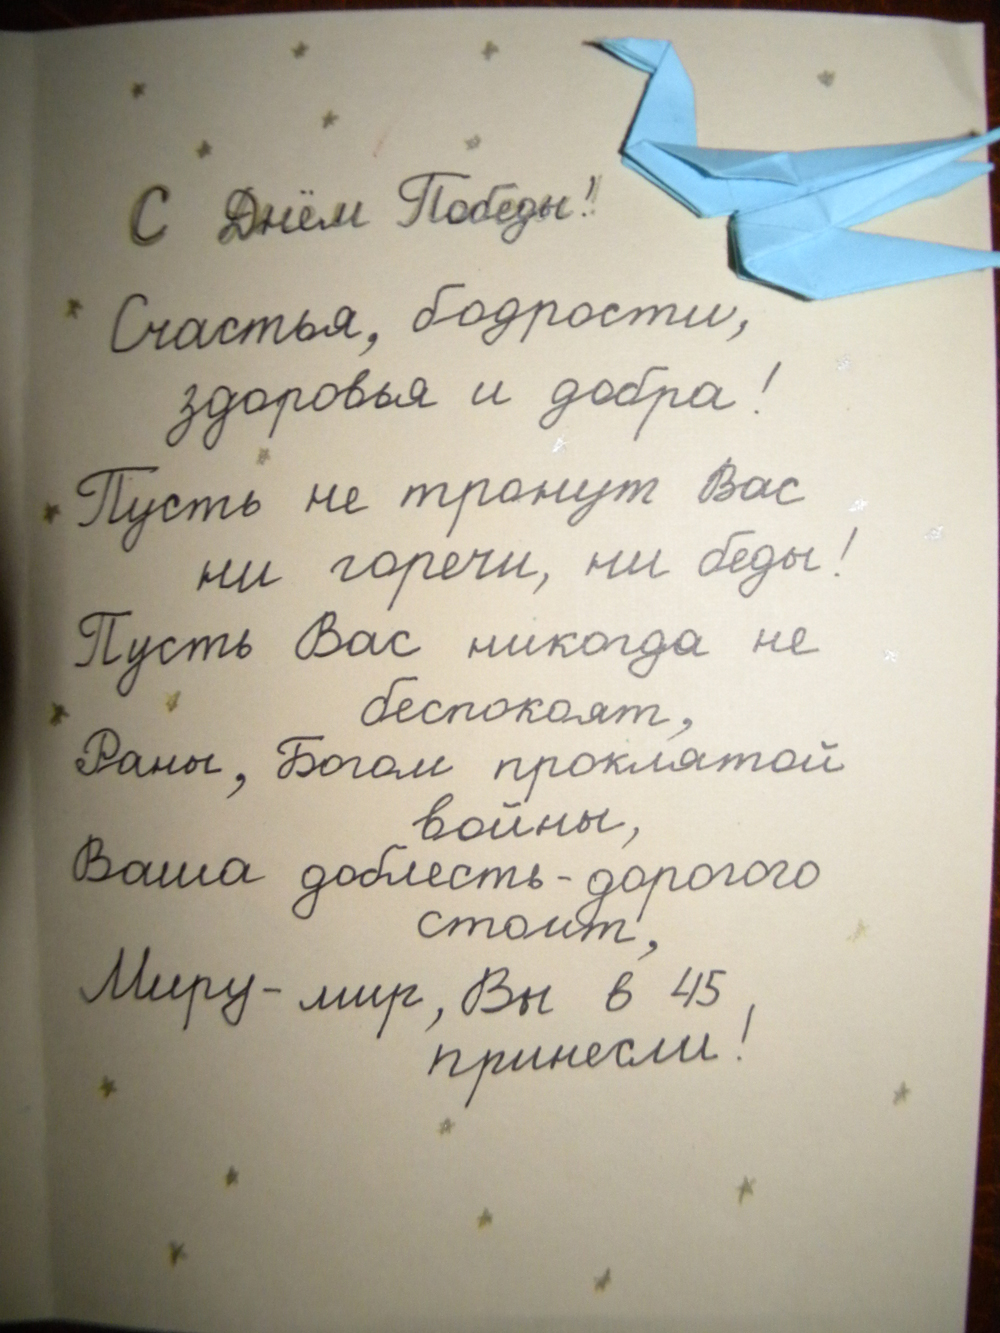 С Днём Победы!!
Счастья, бодрости,
здоровья и добра!
Пусть не тронут Вас
ни горечи, ни беды!
Пусть Вас никогда не
беспокоят,
Раны, Богом проклятой
войны,
Ваша доблесть - дорогого
стоит,
Миру - мир, Вы в 45
принесли!